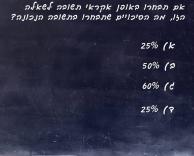 אם תבחרו באופן אקראי תשובה לשאלה
הזו, מה הסיכויים שתבחרו בתשובה הנכונה?
א) 25%
ב) 50%
ג) 60%
ד) 25%